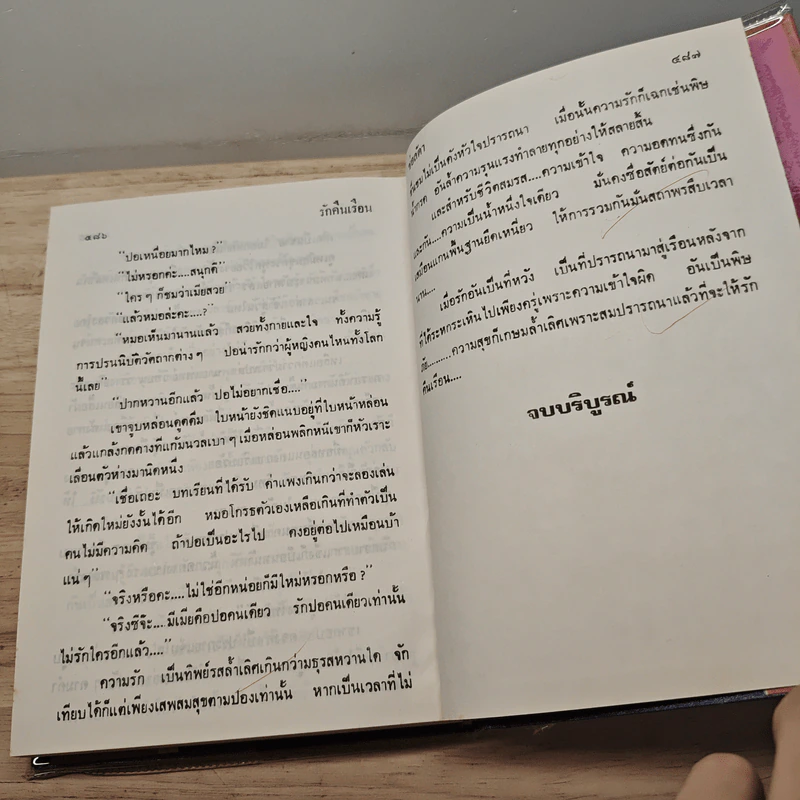 ๔๘๖
รักคืนเรือน
“ปอเหนื่อยมากไหม?”
“ไม่หรอกค่ะ....สนุกดี”
“ใคร ๆ ก็ชมว่าเมียสวย”
“แล้วหมอล่ะคะ....?”
“หมอเห็นมานานแล้ว สวยทั้งกายและใจ ทั้งความรู้
การปรนนิบัติวัตถากต่าง ๆ ปอน่ารักกว่าผู้หญิงคนไหนทั้งโลก
นี้เลย”
“ปากหวานอีกแล้ว ปอไม่อยากเชื่อ....”
เขาจูบหล่อนดูดดื่ม ใบหน้ายังชิดแนบอยู่ที่ใบหน้าหล่อน
แล้วแกล้งกดคางที่แก้มนวลเบา ๆ เมื่อหล่อนพลิกหนีเขาก็หัวเราะ
เลื่อนตัวห่างมานิดหนึ่ง
“เชื่อเถอะ บทเรียนที่ได้รับ ค่าแพงเกินกว่าจะลองเล่น
ให้เกิดใหม่ยังงั้นได้อีก หมอโกรธตัวเองเหลือเกินที่ทำตัวเป็น
คนไม่มีความคิด ถ้าปอเป็นอะไรไป คงอยู่ต่อไปเหมือนบ้า
แน่ ๆ”
“จริงหรือคะ....ไม่ใช่อีกหน่อยก็มีใหม่หรอกหรือ?”
“จริงซีจ๊ะ....มีเมียคือปอคนเดียว รักปอคนเดียวเท่านั้น
ไม่รักใครอีกแล้ว....”
ความรัก เป็นทิพย์รสล้ำเลิศเกินกว่ามธุรสหวานใด จัก
เทียบได้ก็แต่เพียงเสพสมสุขตามปองเท่านั้น หากเป็นเวลาที่ไม่
๔๘๗
ไม่เป็นดังหัวใจปรารถนา เมื่อนั้นความรักก็เฉกเช่นพิษ
อันล้ำความรุนแรงทำลายทุกอย่างให้สลายสิ้น
และสำหรับชีวิตสมรส....ความเข้าใจ ความอดทนซึ่งกัน
และกัน....ความเป็นน้ำหนึ่งใจเดียว มั่นคงซื่อสัตย์ต่อกันเป็น
เหมือนแกนพื้นฐานยึดเหนี่ยว ให้การรวมกันมั่นสถาพรสืบเวลา
นาน....
เมื่อรักอันเป็นที่หวัง เป็นที่ปรารถนามาสู่เรือนหลังจาก
ที่ได้ระหกระเหินไปเพียงครู่เพราะความเข้าใจผิด อันเป็นพิษ
ภัย.........ความสุขก็เกษมล้ำเลิศเพราะสมปรารถนาแล้วที่จะให้รัก
คืนเรือน....
จบบริบูรณ์